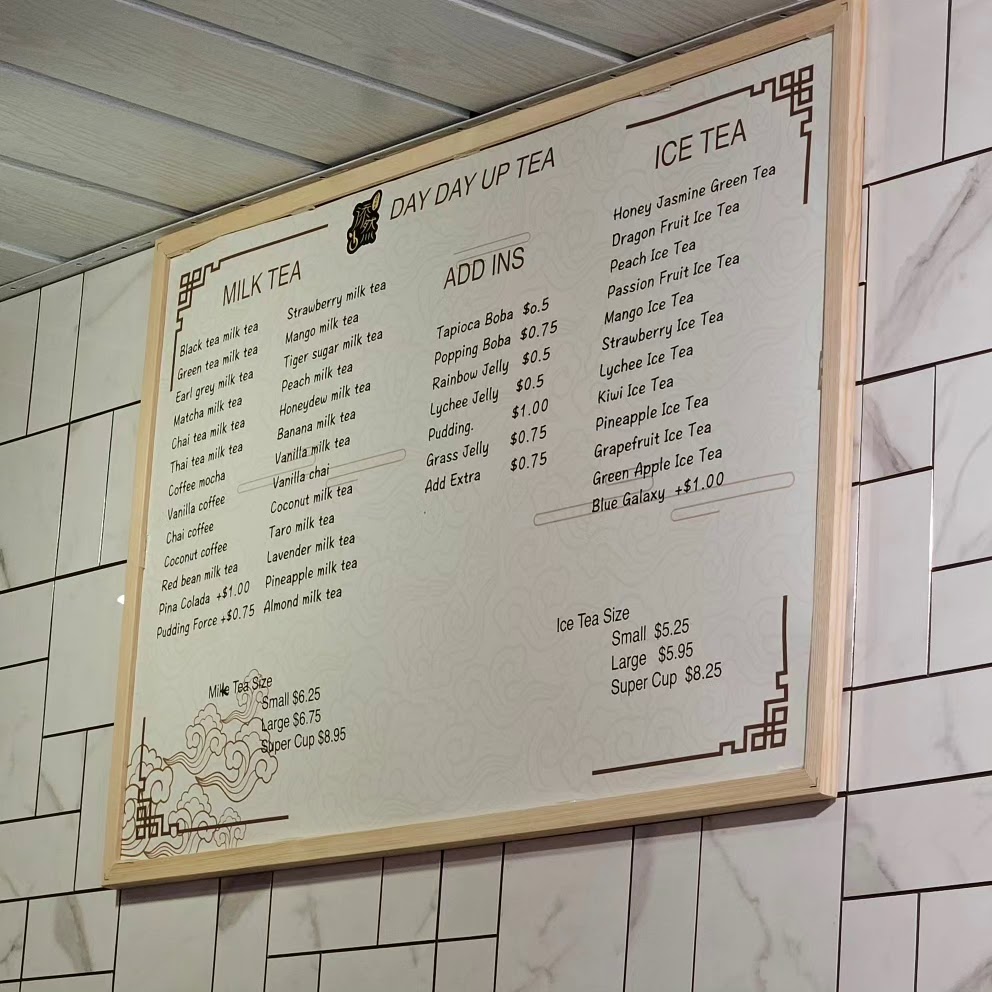 DAY DAY UP TEA
MILK TEA
Black tea milk tea
Green tea milk tea
Earl grey milk tea
Matcha milk tea
Chai tea milk tea
Thai tea milk tea
Coffee mocha
Vanilla coffee
Chai coffee
Coconut coffee
Red bean milk tea
Pina Colada +$1.00
Pudding Force +$0.75
Strawberry milk tea
Mango milk tea
Tiger sugar milk tea
Peach milk tea
Honeydew milk tea
Banana milk tea
Vanilla milk tea
Vanilla chai
Coconut milk tea
Taro milk tea
Lavender milk tea
Pineapple milk tea
Almond milk tea
Milk Tea Size
Small $6.25
Large $6.75
Super Cup $8.95
ADD INS
Tapioca Boba $0.5
Popping Boba $0.75
Rainbow Jelly $0.5
Lychee Jelly $0.5
Pudding. $1.00
Grass Jelly $0.75
Add Extra $0.75
ICE TEA
Honey Jasmine Green Tea
Dragon Fruit Ice Tea
Peach Ice Tea
Passion Fruit Ice Tea
Mango Ice Tea
Strawberry Ice Tea
Lychee Ice Tea
Kiwi Ice Tea
Pineapple Ice Tea
Grapefruit Ice Tea
Green Apple Ice Tea
Blue Galaxy +$1.00
Ice Tea Size
Small $5.25
Large $5.95
Super Cup $8.25